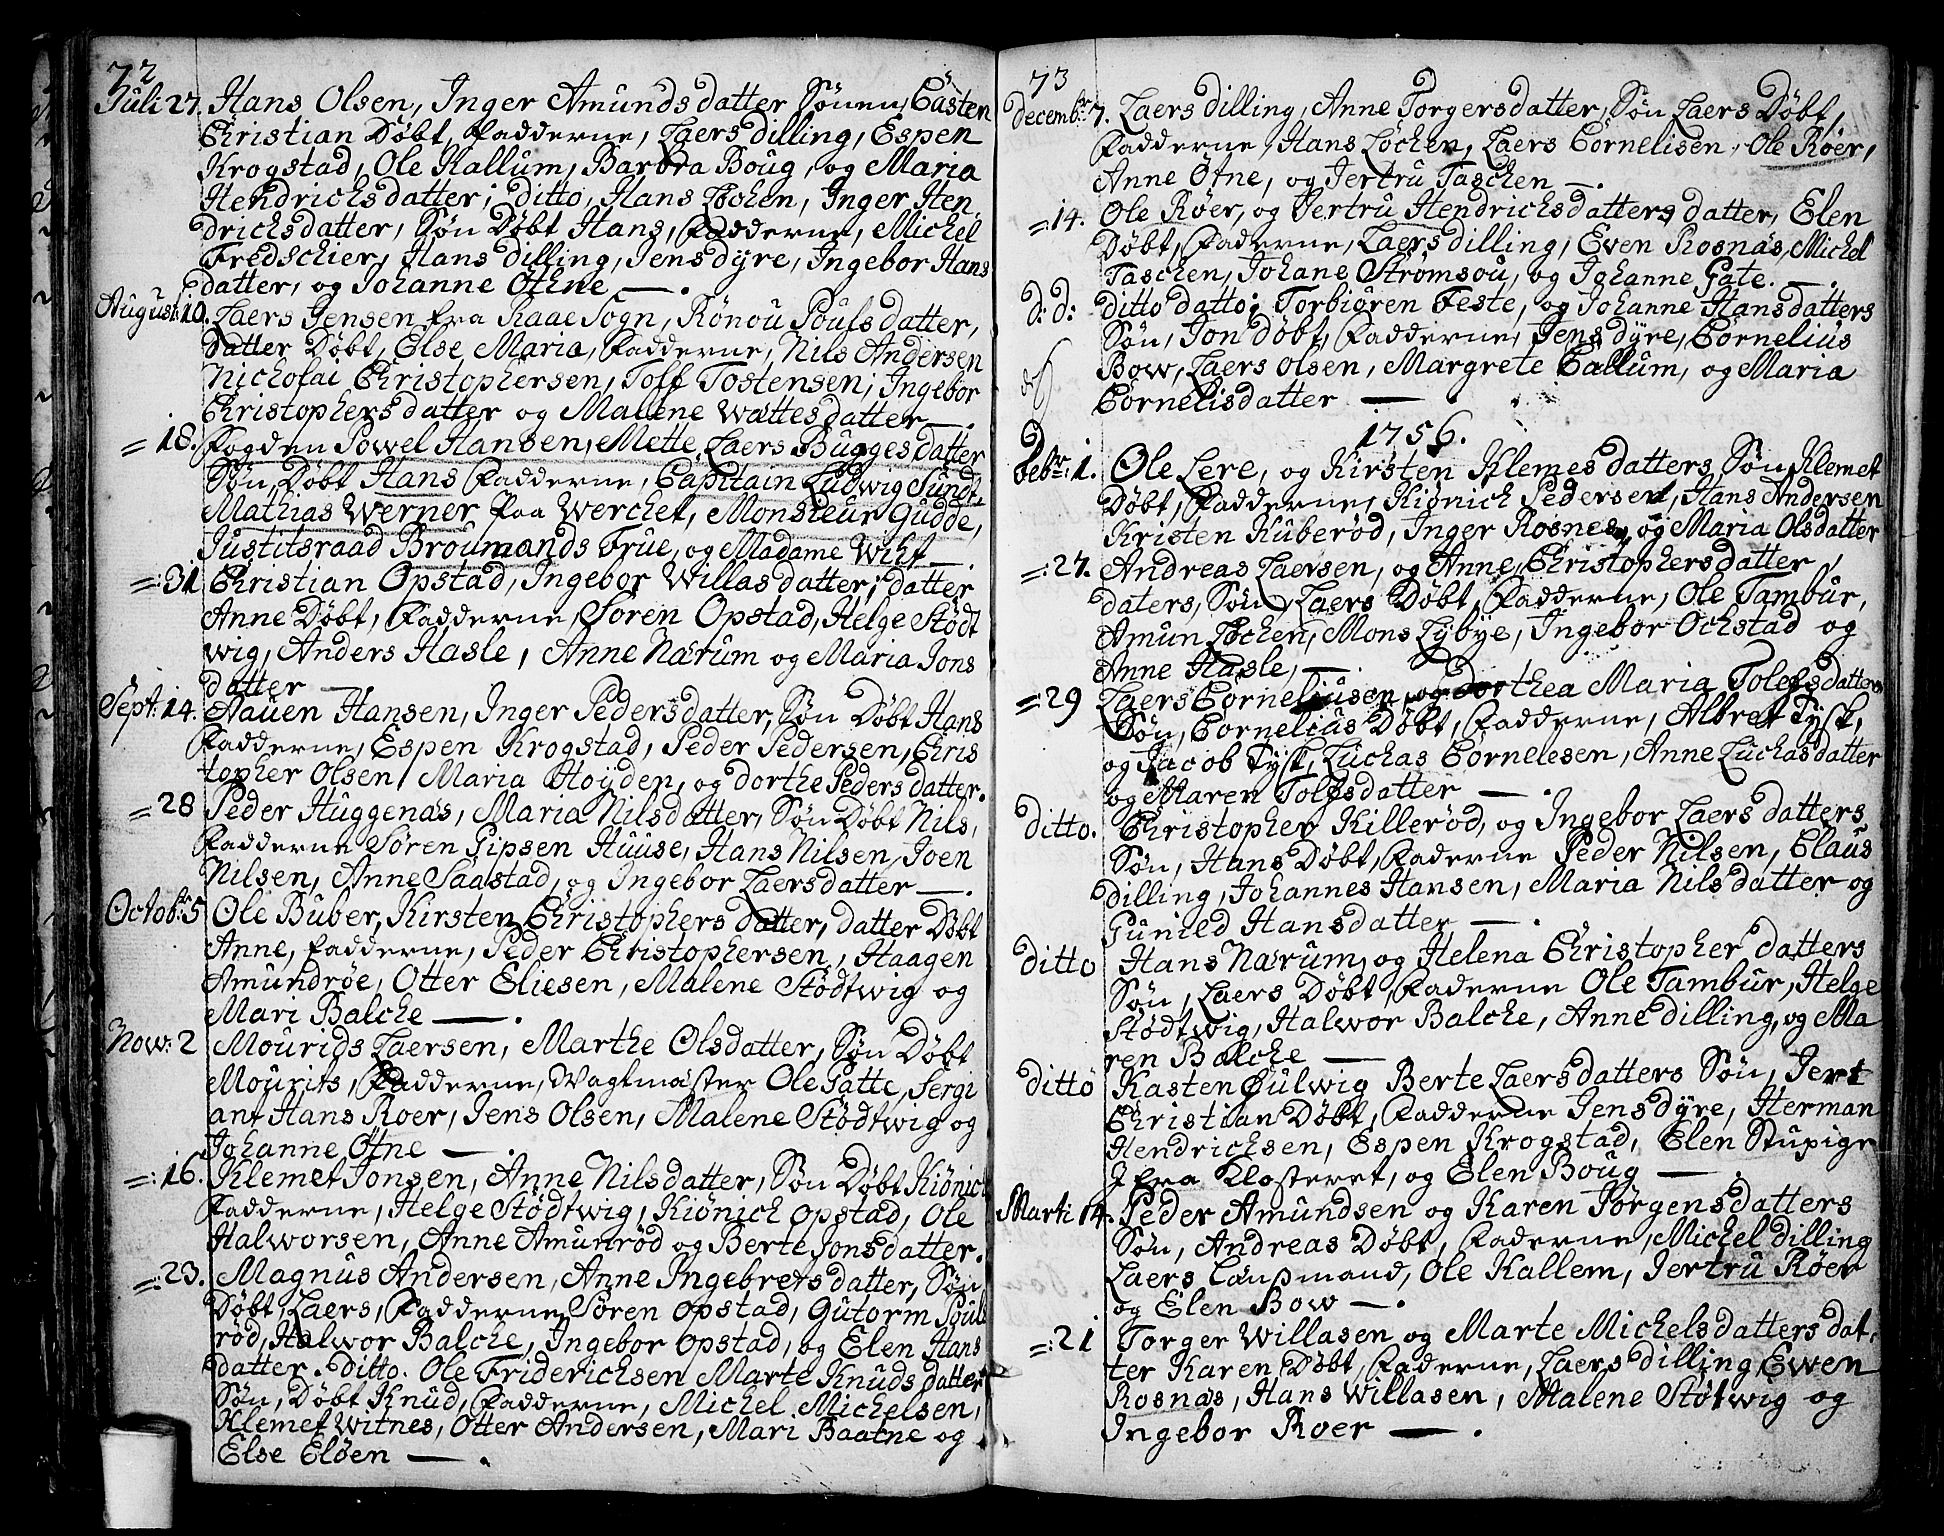 72
Juli 27. Hans Olsen, Inger Amunds datter Sønen, Casten
Christian Døbt, Fadderne, Laers Dilling, Espen
Krogstad, Ole Kallum, Barbra Boug, og Maria
Hendrichs datter; ditto, Hans Løchen, Inger Hen
drichsdatter, Søn Døbt Hans, Fadderne, Michel
Fredschier, Hans Dilling, Jens dyre, Ingebor Hans
datter, og Johanne Othne —.
August: 10. Laers Jensen fra Raae Sogn, Rönou Poulsdatter,
datter Døbt, Else Maria, Fadderne, Nils Andersen
Nicholai Christophersen, Toff Tostensen, Ingebor
Christophers datter og Malene Wattes datter —.
=18. Fogden Powel Hansen, Mette Laers Bugges datter
Søn Døbt Hans Fadderne, Capitain Ludwig Sundt,
Mathias Werner paa Werchet, Monsieur Gudde,
Justitsraad Broumands Frue, og Madame Wiht —.
=:31 Christian Opstad, Ingebor Willas datter; datter
Anne Døbt, Fadderne, Sören Opstad, Helge Stödt
wig, Anders Hasle, Anne Narum og Maria Jons
datter —
Sept: 14. Nauen Hansen, Inger Pedersdatter, Søn Døbt Hans
Fadderne, Espen Krogstad, Peder Pedersen, Chris
topher Olsen, Maria Høyden, og dorthe Peders datter.
=28 Peder Huggenäs, Maria Nilsdatter, Søn Døbt Nils,
Fadderne Søren Pipsen Huuse, Hans Nilsen, Joen
Nilsen, Anne Saastad, og Ingebor Laersdatter —.
Octobr: 5 Ole Buber, Kirsten Christophers datter, datter Døbt
Anne, Fadderne, Peder Christophersen, Haagen
Amundrøe, Otter Eliesen, Malene Stödtwig og
Mari Balche —.
Now: 2 Mourids Laersen, Marthe Olsdatter, Søn Døbt
Mourits, Fadderne, Wagtmäster Ole Gatte, Sergi
ant Hans Roer, Jens Olsen, Malene Stödtwig og
Johanne Otne —.
=:16. Klemet Jonsen, Anne Nilsdatter, Søn Døbt Kiönich
Fadderne, Helge Stödtwig, Kiönich Opstad, Ole
Halworsen, Anne Amunrød og Berte Jonsdatter.
=:23. Magnus Andersen, Anne Ingebretsdatter, Søn
Døbt, Laers, Fadderne Søren Opstad, Gutorm Pouls
rød, Halwor Balche, Ingebor Opstad, og Elen Hans
datter. Ditto. Ole Friderichsen Marte Knuds datter
Søn, Døbt Knud, Fadderne, Michel Michelsen,
Klemet Witnes, Otter Andersen, Mari Baatne og
Else Eløen —.
73
Decembr: 7. Laers Dilling, Anne Torgersdatter, Søn Laers Døbt,
Fadderne, Hans Løchen, Laers Cornelisen, Ole Röer,
Anne Otne, og Jertru Taschen —.
=:14. Ole Røer, og Jertru Hendrichsdatters datter, Elen
Døbt, Faderne, Laers Dilling, Even Rosnäs, Michel
Taschen, Johane Strömsou, og Johanne Gate. —.
d: d: ditto datto; Torbiören Feste, og Johanne Hansdatters
Søn, Jon Døbt, Fadderne, Jens dyre, Cornelius
Bow, Laers Olsen, Margrete Callum, og Maria
Cornelisdatter —
1756.
Febr: 1. Ole Lere, og Kirsten Klemes datters Søn Klemet
Døbt, Fadderne, Kiönich Pedersen, Hans Andersen
Kristen Kuberød, Inger Rosnes, og Maria Olsdatter
=:27. Andreas Laersen, og Anne Christophersdatter
daters, Søn, Laers Døbt, Fadderne, Ole Tambur,
Amun Løchen, Mons Lybye, Ingebor Ochstad og
Anne Hasle, —.
=:29 Laers Corneliusen, og Dorthea Maria Tolefsdatters
Søn, Cornelius Døbt, Fadderne, Albret Tysk,
og Jacob Tysk, Luchas Cornelesen, Anne Luchasdatter
og Maren Tolfsdatter —.
Ditto. Christopher Killerød, og Ingebor Laers datters
Søn, Hans Døbt, Faderne Peder Nilsen, Claus
Dilling, Johannes Hansen, Maria Nils datter og
Gunild Hansdatter —.
Ditto Hans Narum, og Helena Christopher datters
Søn, Laers Døbt, Faderne Ole Tambur, Helge
Stödtwig, Halwor Balche, Anne Dilling, og Ma
ren Balche —
Ditto Kasten Hulwig Berte Laersdatters Søn, Jert
Christian Døbt, Fadderne Jens dyre, Herman
Hendrichsen, Espen Krogstad, Elen Stupige
J fra Klosteret, og Elen Boug —.
Marti 14. Peder Amundsen og Karen Jörgensdatters
Søn, Andreas Døbt, Faderne, Michel Dilling
Laers Länßmand, Ole Kallem, Jertru Röer
og Elen Bow —.
=:21 Torger Willasen og Marte Michelsdatters dat,
ter Karen Døbt, Faderne, Laers Dilling, Ewen
Rosnäs, Hans Willasen, Malene Stötwig og
Ingebor Roer —.